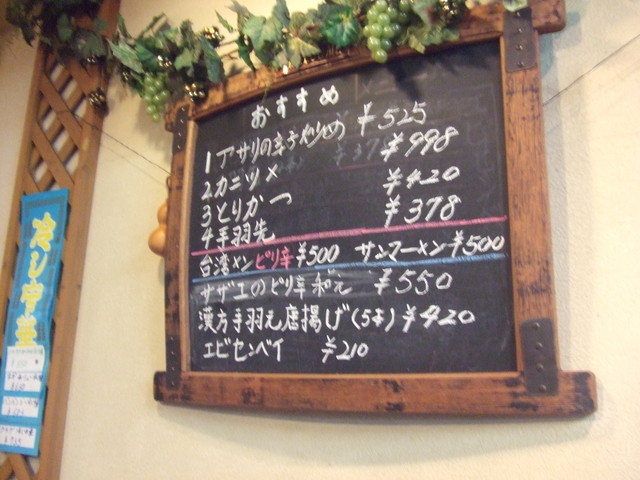 おすすめ
1アサリの辛子炒め ¥525
2カニツメ ¥998
3とりかつ ¥420
4手羽先 ¥378
台湾メンピリ辛¥500 サンマーメン¥500
サザエのピリ辛和え ¥550
漢方手羽元唐揚げ(5本) ¥420
エビセンベイ ¥210
冷し中華